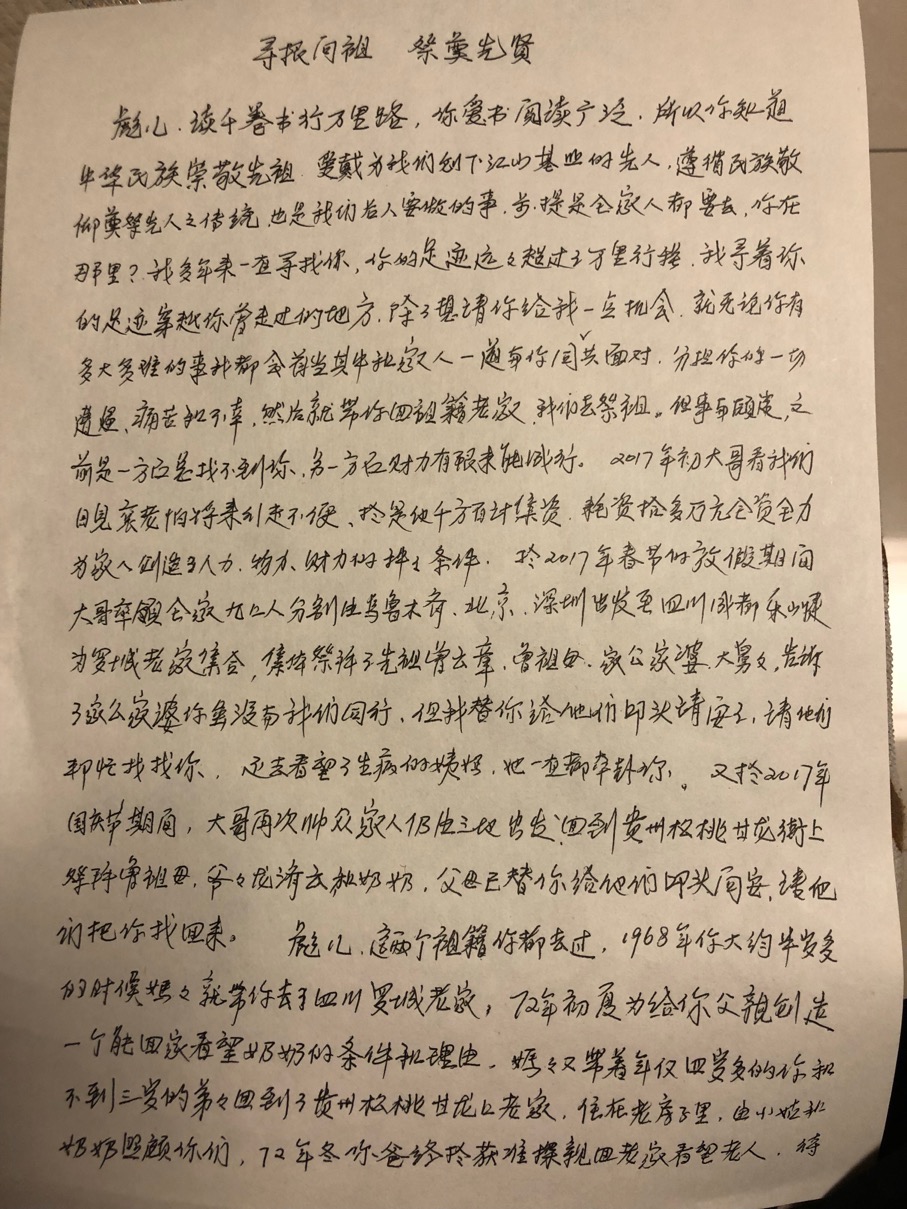 寻根问祖 祭奠先贤
彪儿：读千卷书行万里路，你爱书阅读广泛，所以你知道
中华民族崇敬先祖，爱戴为我们创下江山基业的先人，遵循民族敬
仰奠祭先人之传统，也是我们后人要做的事，前提是全家人都要去，你在
那里？我多年来一直寻找你，你的足迹远々超过了万里行程，我寻着你
的足迹穿越你曾走过的地方，除了想请你给我一点机会，就无论你有
多大多难的事我都会肩当其中和家人一道与你同共面对，分担你的一切
遭遇、痛苦和不幸，然后就带你回祖籍老家，我们去祭祖。但事与愿违，之
前是一方面总找不到你，另一方面财力有限未能成行。2017年初大哥看我们
日见衰老怕将来引走不便、於是他千方百计续资，耗资拾多万元全资全力
为家人创造了人力、物力、财力的种々条件，於2017年春节的放假期间
大哥率领全家九口人分别由乌鲁木齐、北京、深圳出发至四川成都乐山犍
为罗城老家集合，集体祭拜了先祖曾云章、曾祖母、家公家婆、大舅々，告诉
了家公家婆你虽没与我们同行、但我替你给他们叩头请安了，请他们
帮忙找找你，还去看望了生病的姨妈，她一直都牵卦你。又於2017年
国庆节期间，大哥再次帅众家人仍由三地出发，回到贵州松桃甘龙街上
祭拜曾祖母、爷々龙济云和奶奶，父母已替你给他们叩头问安，请他
们把你找回来。 彪儿，这两个祖籍你都去过，1968年你大约半岁多
的时候妈々就带你去了四川罗城老家，72年初夏为给你父亲创造
一个能回家看望奶奶的条件和理由，妈々又带着年仅四岁多的你和
不到三岁的弟々回到了贵州松桃甘龙口老家，住在老房子里，由小姑和
奶奶照顾你们，72年冬你爸终於获准探亲回老家看望老人，待